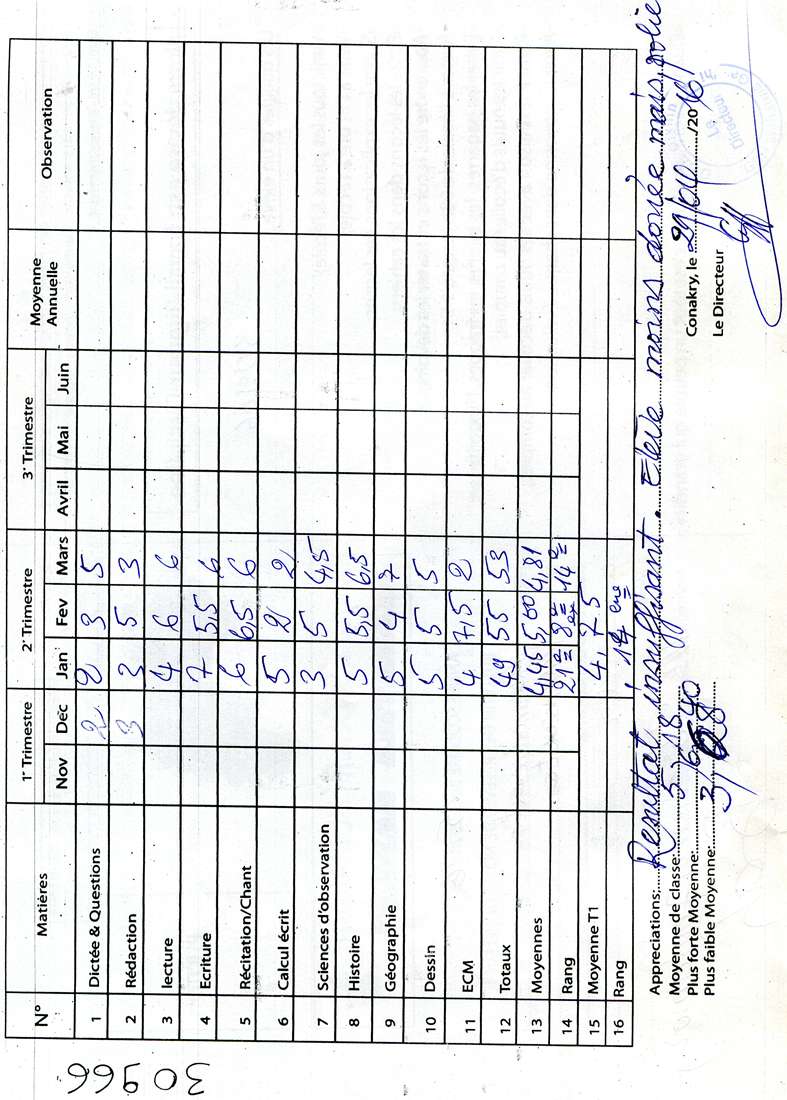 30966
N° Matières 1e Trimestre 2e Trimestre 3e Trimestre Moyenne Annuelle Observation
Nov Dec Jan Fev Mars Avril Mai Juin
1 Dictée & Questions 2 2 3 5
2 Rédaction 3 3 5 3
3 lecture 4 6 6
4 Ecriture 7 5,5 6
5 Récitation/Chant 6 6,5 6
6 Calcul écrit 5 2 2
7 Sciences d'observation 3 5 4,5
8 Histoire 5 5,5 6,5
9 Géographie 5 4 7
10 Dessin 5 5 5
11 ECM 4 7,5 2
12 Totaux 49 55 53
13 Moyennes 4,45 5,00 4,81
14 Rang 21e 8e ex 14e
15 Moyenne T1 4,75
16 Rang 14ème
Appreciations: Resultat insuffisant. Elève moins donée mais polie
Moyenne de classe: 5,18
Plus forte Moyenne: 6,40
Plus faible Moyenne: 3,28
Conakry, le 29/04/2016
Le Directeur
Le
Directeur